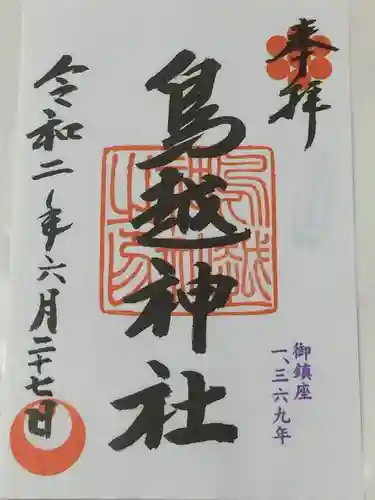 奉拝
鳥越神社
御鎮座
一、三六九年
令和二年六月二十七日